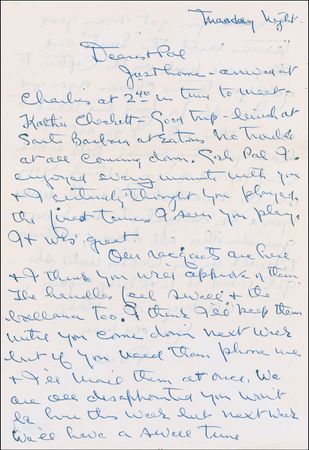 Tuesday Night.
Dearest Pal
Just home - arrived at
Charlies at 2 40 in time to meet
Good trip - lunch at
Santa Barbara at Eatons no trouble
at all coming down. Gosh Pal I
enjoyed every minute with you
& I certainly thought you played
the finest tennis I seen you play.
It was great
Our racquets are here
& I think you will approve of them
The handles feel swell & the
balance too. I think I'll keep them
until you come down next week
but if you need them phone me
& I'll mail them at once. We
are all disappointed you won't
be here this week but next week
We'll have a swell time